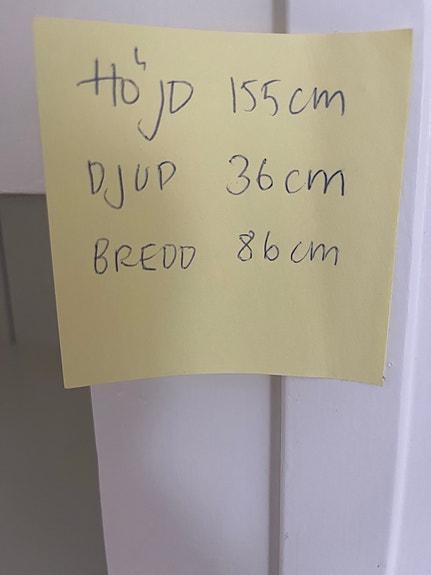 HÖJD 155cm
DJUP 36cm
BREDD 86cm